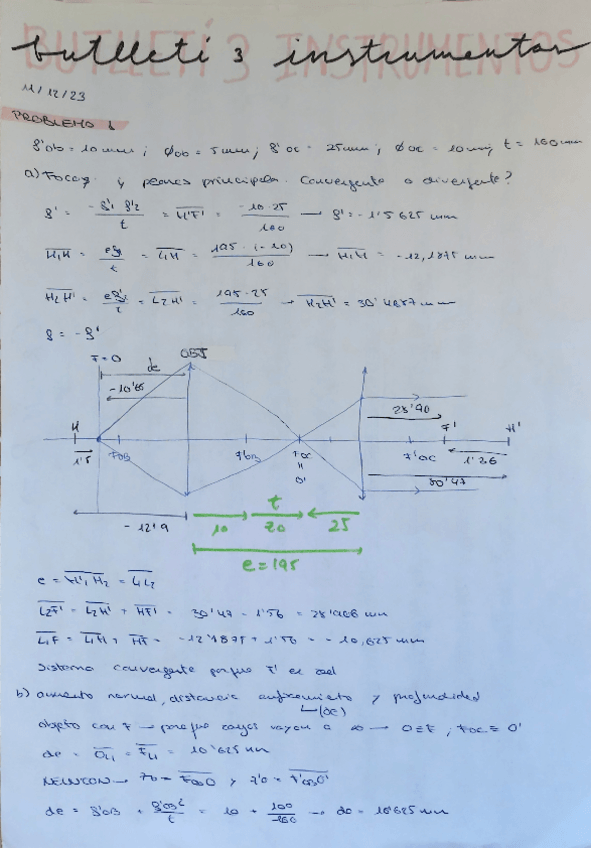 BUTLLETÍ 3 INSTRUMENTOS
butlletí 3 instrumentos
11/12/23
PROBLEMA 1
f'ob = 10 mm ; φob = 5mm ; f'oc = 25mm ; φoc = 10mm ; t = 160mm
a) Focal y planos principales. Convergente o divergente?
f' = -f'1 f'2 / t = H'F' = -10·25 / 160 → f' = -1'5625 mm
H1H = ef / t = L1H = 195·(-10) / 160 → H1H = -12,1875 mm
H2H' = ef' / t = L2H' = 195·25 / 160 → H2H' = 30'4687 mm
f = -f'
F=O de OBJ
-10'65
28'90
H F' H'
1'5 FOB F'OB FOC F'OC 1'56
O'
30'47
-12'9 t
10 20 25
e=195
e = H'1H2 = L1L2
L2F' = L2H' + H'F' = 30'47 - 1'56 = 28'906 mm
L1F = L1H + HF = -12'1875 + 1'56 = -10,625 mm
Sistema convergente porque F' es real
b) aumento normal, distancia enfocamiento y profundidad
(de)
objeto con F → para que rayos vayan a ∞ → O≡F , FOC≡O'
de = OL1 = FL1 = 10'625 mm
NEWTON → zo = FOBO y z'o = F'OBO'
de = f'OB + f'OB² / t = 10 + 100 / 160 → de = 10'625 mm